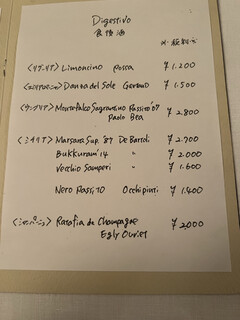 Digestivo
食後酒
〈リグーリア〉 Limoncino Rossa ¥1.200
Danza del Sole Gerardo ¥1.500
〈ウンブリア〉 Montefalco Sagrantino Passito '07 ¥2.800
Paolo Bea
〈シチリア〉 Marsara Sup. '87 De Bartoli ¥2.700
Bukkuram '14 〃 ¥2.000
Vecchio Samperi 〃 ¥1.600
Nero Passito Occhipinti ¥1.400
〈シャンパーニュ〉 Ratafia de Champagne ¥2000
Egly Ouriet